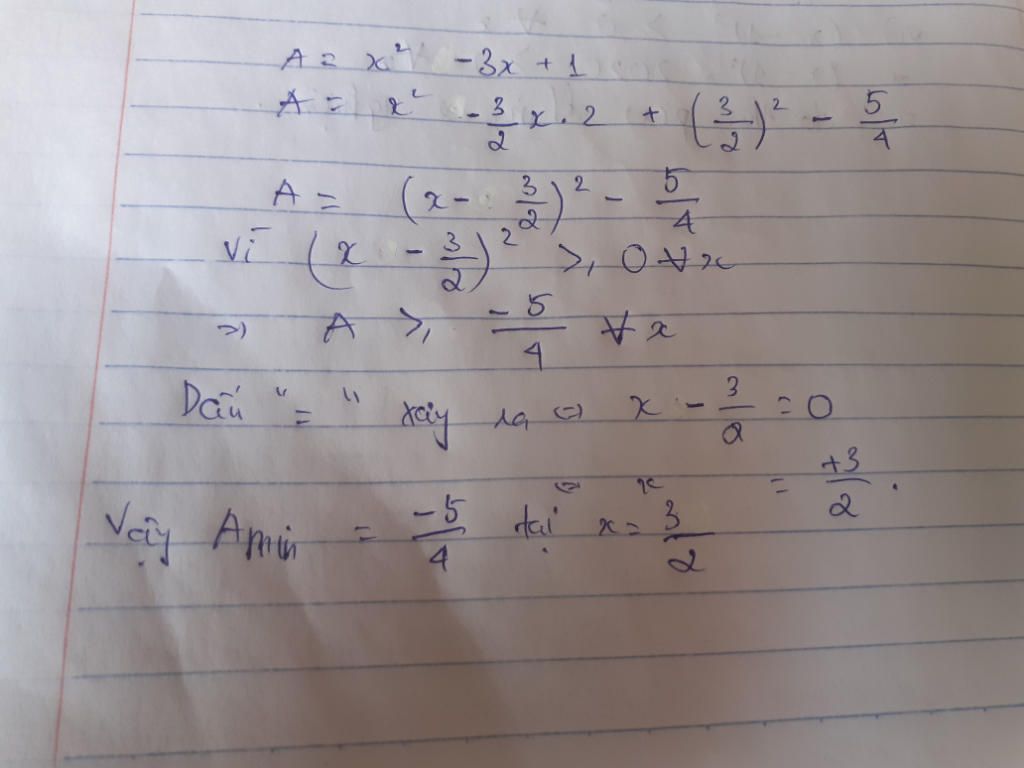 A = x² - 3x + 1
A = x² - 3/2 x . 2 + (3/2)² - 5/4
A = (x - 3/2)² - 5/4
Vì (x - 3/2)² ≥ 0 ∀x
=> A ≥ -5/4 ∀x
Dấu "=" xảy ra <=> x - 3/2 = 0
<=> x = +3/2 .
Vậy Amin = -5/4 tại x = 3/2